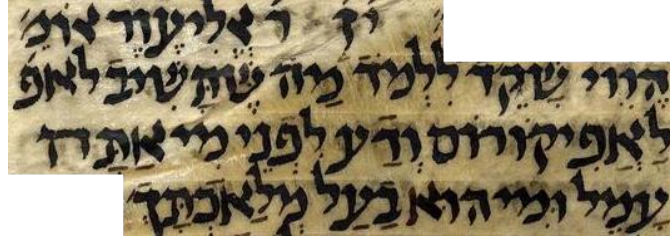 יד ר אליעזר אומ'
הווי שקד ללמד מה שתשיב לאפ
לאפיקורוס ודע לפני מי את
עמל ומי הוא בעל מלאכתך